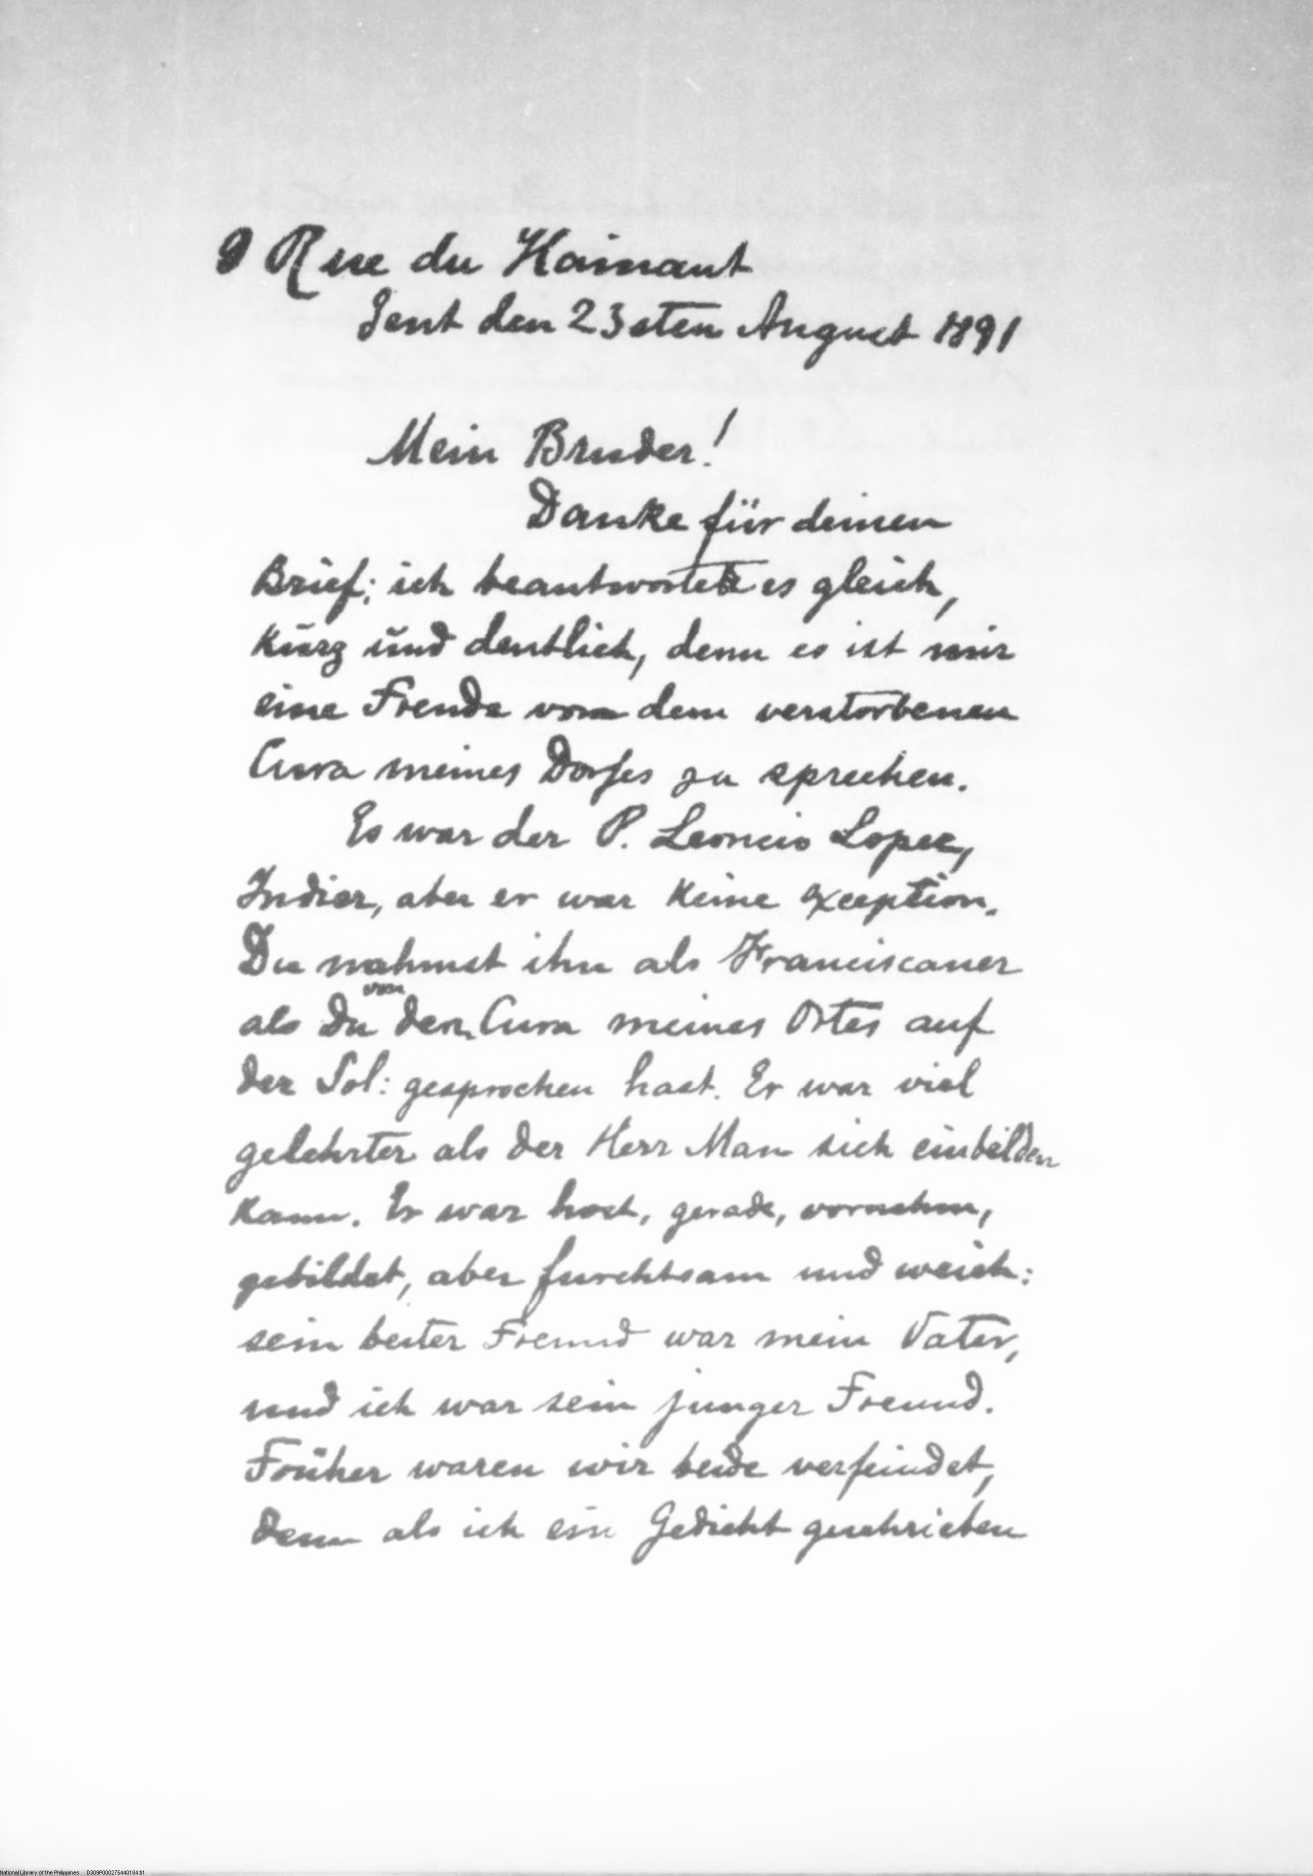 9 Rue du Hainaut
Gent den 23sten August 1891
Mein Bruder!
Danke für deinen
Brief; ich beantworte es gleich,
kurz und deutlich, denn es ist mir
eine Freude von dem verstorbenen
Cura meines Dorfes zu sprechen.
Es war der P. Leoncio Lopez,
Indier, aber er war keine exception.
Du nahmst ihn als Franciscaner
als du von dem Cura meines Ortes auf
der Sol: gesprochen hast. Er war viel
gelehrter als der Herr Man sich einbilden
kann. Er war hoch, gerade, vornehm,
gebildet, aber furchtsam und weich:
sein bester Freund war mein Vater,
und ich war sein junger Freund.
Früher waren wir beide verfeindet,
denn als ich ein Gedicht geschrieben
National Library of the Philippines